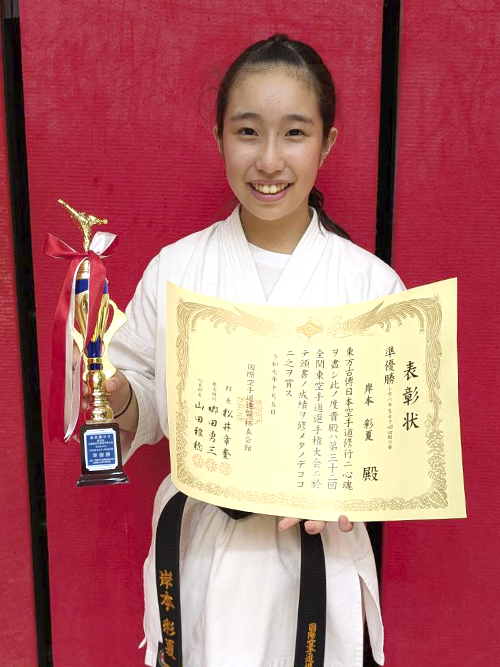 表彰状
準優勝
岸本 彩夏 殿
東方古傳日本空手道修行ニ心魂
ヲ盡シ此ノ度貴殿ハ第三十二回
全関東空手道選手権大会ニ於
テ頭書ノ成績ヲ修メタノデココ
ニ之ヲ賞ス
令和七年十月五日
国際空手道連盟極真会館
館長 松井章奎
郷田勇三
山田雅稔
準優勝
岸本 彩夏
国際空手道連